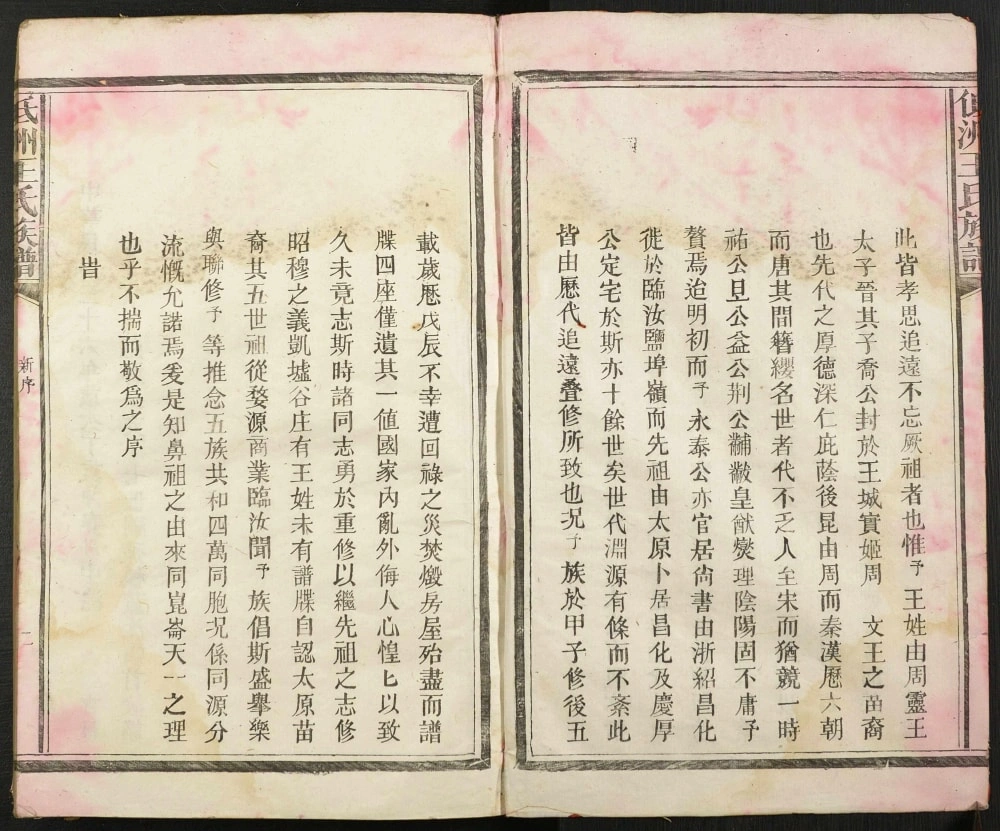 洲王氏族譜
此皆孝思追遠不忘厥祖者也惟予王姓由周靈王
太子晉其子喬公封於王城實姬周 文王之苗裔
也先代之厚德深仁庇蔭後昆由周而秦漢歷六朝
而唐其間簪纓名世者代不乏人至宋而猶競一時
祐公旦公益公荆公黼黻皇猷燮理陰陽固不庸予
贅焉迨明初而予永泰公亦官居尚書由浙紹昌化
徙於臨汝鹽埠嶺而先祖由太原卜居昌化及慶厚
公定宅於斯亦十餘世矣世代淵源有條而不紊此
皆由歷代追遠叠修所致也況予族於甲子修後五
載歲曆戊辰不幸遭回祿之災焚燬房屋殆盡而譜
牒四座僅遺其一值國家內亂外侮人心惶匕以致
久未竟志斯時諸同志勇於重修以繼先祖之志修
昭穆之義凱墟谷庄有王姓未有譜牒自認太原苗
裔其五世祖從婺源商業臨汝聞予族倡斯盛舉樂
與聯修予等推念五族共和四萬同胞況係同源分
流慨允諾焉爰是知鼻祖之由來同崑崙天一之理
也乎不揣而敬爲之序
旹
氏洲王氏族譜
新序
二